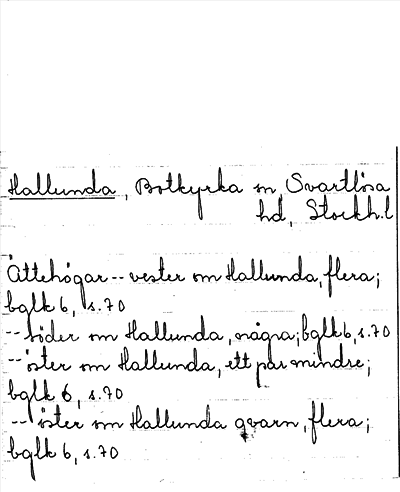 Hallunda, Botkyrka sn, Svartlösa
hd, Stockh.l
Ättehögar -- vester om Hallunda, flera;
bglk 6, s.70
-- söder om Hallunda, några; bglk 6, s.70
-- öster om Hallunda, ett par mindre;
bglk 6, s.70
-- öster om Hallunda qvarn, flera;
bglk 6, s.70